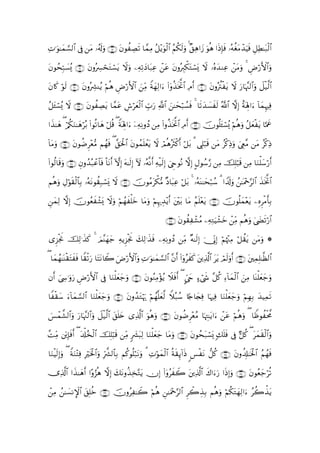 ٱلْبَـٰطِلِ فَيَدْمَغُهُۥ فَإِذَا هُوَ زَاهِقٌ ۚ وَلَكُمُ ٱلْوَيْلُ مِمَّا تَصِفُونَ ﴿١٨﴾ وَلَهُۥ مَن فِى ٱلسَّمَـٰوَٰتِ
وَٱلْأَرْضِ ۚ وَمَنْ عِندَهُۥ لَا يَسْتَكْبِرُونَ عَنْ عِبَادَتِهِۦ وَلَا يَسْتَحْسِرُونَ ﴿١٩﴾ يُسَبِّحُونَ
ٱلَّيْلَ وَٱلنَّهَارَ لَا يَفْتُرُونَ ﴿٢٠﴾ أَمِ ٱتَّخَذُوٓا۟ ءَالِهَةً مِّنَ ٱلْأَرْضِ هُمْ يُنشِرُونَ ﴿٢١﴾ لَوْ كَانَ
فِيهِمَآ ءَالِهَةٌ إِلَّا ٱللَّهُ لَفَسَدَتَا ۚ فَسُبْحَـٰنَ ٱللَّهِ رَبِّ ٱلْعَرْشِ عَمَّا يَصِفُونَ ﴿٢٢﴾ لَا يُسْـَٔلُ
عَمَّا يَفْعَلُ وَهُمْ يُسْـَٔلُونَ ﴿٢٣﴾ أَمِ ٱتَّخَذُوا۟ مِن دُونِهِۦٓ ءَالِهَةً ۖ قُلْ هَاتُوا۟ بُرْهَـٰنَكُمْ ۖ هَـٰذَا
ذِكْرُ مَن مَّعِىَ وَذِكْرُ مَن قَبْلِى ۗ بَلْ أَكْثَرُهُمْ لَا يَعْلَمُونَ ٱلْحَقَّ ۖ فَهُم مُّعْرِضُونَ ﴿٢٤﴾ وَمَآ
أَرْسَلْنَا مِن قَبْلِكَ مِن رَّسُولٍ إِلَّا نُوحِىٓ إِلَيْهِ أَنَّهُۥ لَآ إِلَـٰهَ إِلَّآ أَنَا۠ فَٱعْبُدُونِ ﴿٢٥﴾ وَقَالُوا۟
ٱتَّخَذَ ٱلرَّحْمَـٰنُ وَلَدًا ۗ سُبْحَـٰنَهُۥ ۚ بَلْ عِبَادٌ مُّكْرَمُونَ ﴿٢٦﴾ لَا يَسْبِقُونَهُۥ بِٱلْقَوْلِ وَهُم
بِأَمْرِهِۦ يَعْمَلُونَ ﴿٢٧﴾ يَعْلَمُ مَا بَيْنَ أَيْدِيهِمْ وَمَا خَلْفَهُمْ وَلَا يَشْفَعُونَ إِلَّا لِمَنِ
ٱرْتَضَىٰ وَهُم مِّنْ خَشْيَتِهِۦ مُشْفِقُونَ ﴿٢٨﴾
۞ وَمَن يَقُلْ مِنْهُمْ إِنِّىٓ إِلَـٰهٌ مِّن دُونِهِۦ فَذَٰلِكَ نَجْزِيهِ جَهَنَّمَ ۚ كَذَٰلِكَ نَجْزِى
ٱلظَّـٰلِمِينَ ﴿٢٩﴾ أَوَلَمْ يَرَ ٱلَّذِينَ كَفَرُوٓا۟ أَنَّ ٱلسَّمَـٰوَٰتِ وَٱلْأَرْضَ كَانَتَا رَتْقًا فَفَتَقْنَـٰهُمَا ۖ
وَجَعَلْنَا مِنَ ٱلْمَآءِ كُلَّ شَىْءٍ حَىٍّ ۖ أَفَلَا يُؤْمِنُونَ ﴿٣٠﴾ وَجَعَلْنَا فِى ٱلْأَرْضِ رَوَٰسِىَ أَن
تَمِيدَ بِهِمْ وَجَعَلْنَا فِيهَا فِجَاجًا سُبُلًا لَّعَلَّهُمْ يَهْتَدُونَ ﴿٣١﴾ وَجَعَلْنَا ٱلسَّمَآءَ سَقْفًا
مَّحْفُوظًا ۖ وَهُمْ عَنْ ءَايَـٰتِهَا مُعْرِضُونَ ﴿٣٢﴾ وَهُوَ ٱلَّذِى خَلَقَ ٱلَّيْلَ وَٱلنَّهَارَ وَٱلشَّمْسَ
وَٱلْقَمَرَ ۖ كُلٌّ فِى فَلَكٍ يَسْبَحُونَ ﴿٣٣﴾ وَمَا جَعَلْنَا لِبَشَرٍ مِّن قَبْلِكَ ٱلْخُلْدَ ۖ أَفَإِي۟ن مِّتَّ
فَهُمُ ٱلْخَـٰلِدُونَ ﴿٣٤﴾ كُلُّ نَفْسٍ ذَآئِقَةُ ٱلْمَوْتِ ۗ وَنَبْلُوكُم بِٱلشَّرِّ وَٱلْخَيْرِ فِتْنَةً ۖ وَإِلَيْنَا
تُرْجَعُونَ ﴿٣٥﴾ وَإِذَا رَءَاكَ ٱلَّذِينَ كَفَرُوٓا۟ إِن يَتَّخِذُونَكَ إِلَّا هُزُوًا أَهَـٰذَا ٱلَّذِى
يَذْكُرُ ءَالِهَتَكُمْ وَهُم بِذِكْرِ ٱلرَّحْمَـٰنِ هُمْ كَـٰفِرُونَ ﴿٣٦﴾ خُلِقَ ٱلْإِنسَـٰنُ مِنْ